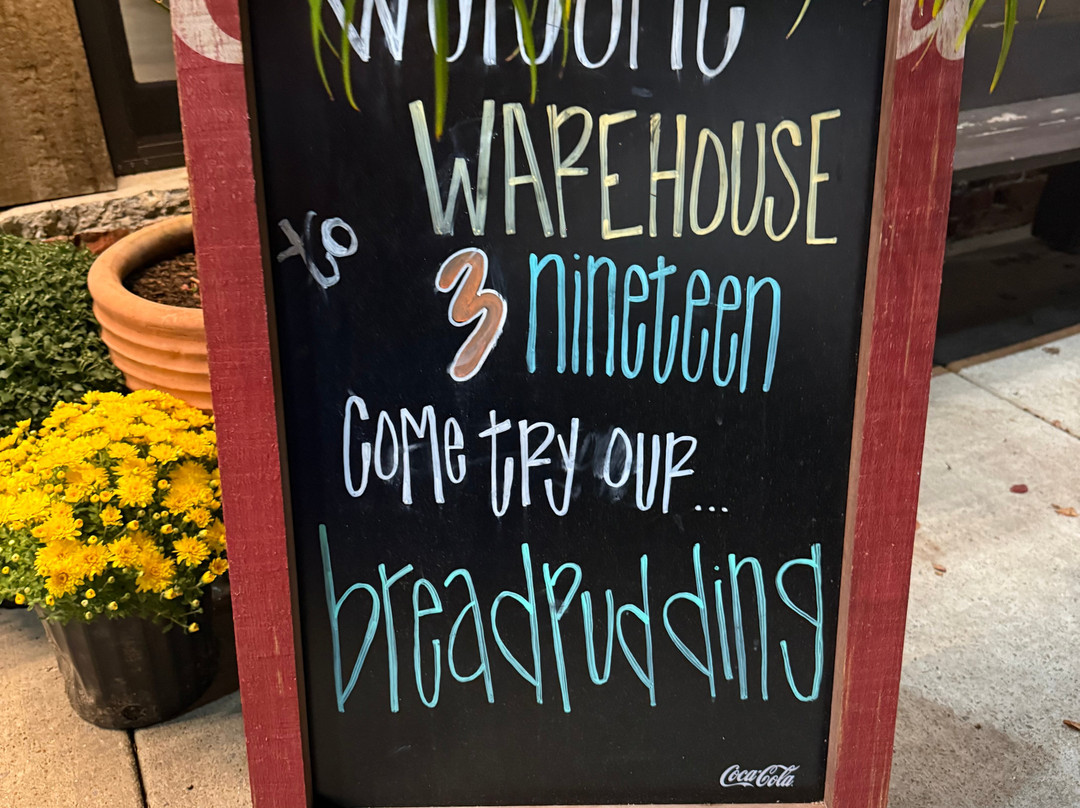 welcome
to
WAREHOUSE
3 nineteen
Come try our...
breadpudding
Coca-Cola